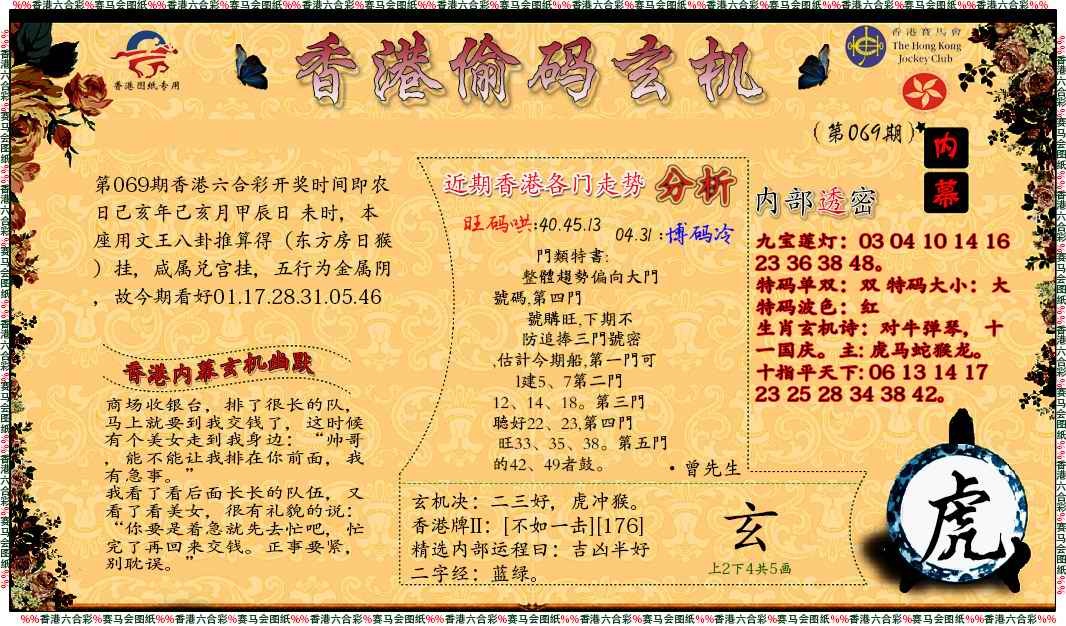 %%香港六合彩%赛马会图纸%%香港六合彩%赛马会图纸%%香港六合彩%赛马会图纸%%香港六合彩%赛马会图纸%%香港六合彩%赛马会图纸%%香港六合彩%赛马会图纸%%香港六合彩%赛马会图纸%%香港六合彩%%
香港图纸专用
香港偷码玄机
香港賽馬會
The Hong Kong
Jockey Club
(第069期)
内幕
第069期香港六合彩开奖时间即农
日己亥年己亥月甲辰日 未时，本
座用文王八卦推算得（东方房日猴
）挂，咸属兑宫挂，五行为金属阴
，故今期看好01.17.28.31.05.46
香港内幕玄机幽默
商场收银台，排了很长的队，
马上就要到我交钱了，这时候
有个美女走到我身边：“帅哥
，能不能让我排在你前面，我
有急事。”
我看了看后面长长的队伍，又
看了看美女，很有礼貌的说：
“你要是着急就先去忙吧，忙
完了再回来交钱。正事要紧，
别耽误。”
近期香港各门走势 分析
旺码哄:40.45.13 04.31 :博码冷
門類特書:
整體趨勢偏向大門
號碼,第四門
號購旺,下期不
防追捧三門號密
,估計今期船,第一門可
1建5、7第二門
12、14、18。第三門
聽好22、23,第四門
旺33、35、38。第五門
的42、49者鼓。
·曾先生
玄机决：二三好，虎冲猴。
香港牌II：[不如一击][176]
精选内部运程曰：吉凶半好
二字经：蓝绿。
玄
上2下4共5画
内部透密
九宝莲灯：03 04 10 14 16
23 36 38 48。
特码单双：双 特码大小：大
特码波色：红
生肖玄机诗：对牛弹琴，十
一国庆。主: 虎马蛇猴龙。
十指平天下: 06 13 14 17
23 25 28 34 38 42。
虎
%%香港六合彩%赛马会图纸%%香港六合彩%赛马会图纸%%香港六合彩%赛马会图纸%%香港六合彩%赛马会图纸%%香港六合彩%赛马会图纸%%香港六合彩%赛马会图纸%%香港六合彩%赛马会图纸%%香港六合彩%%